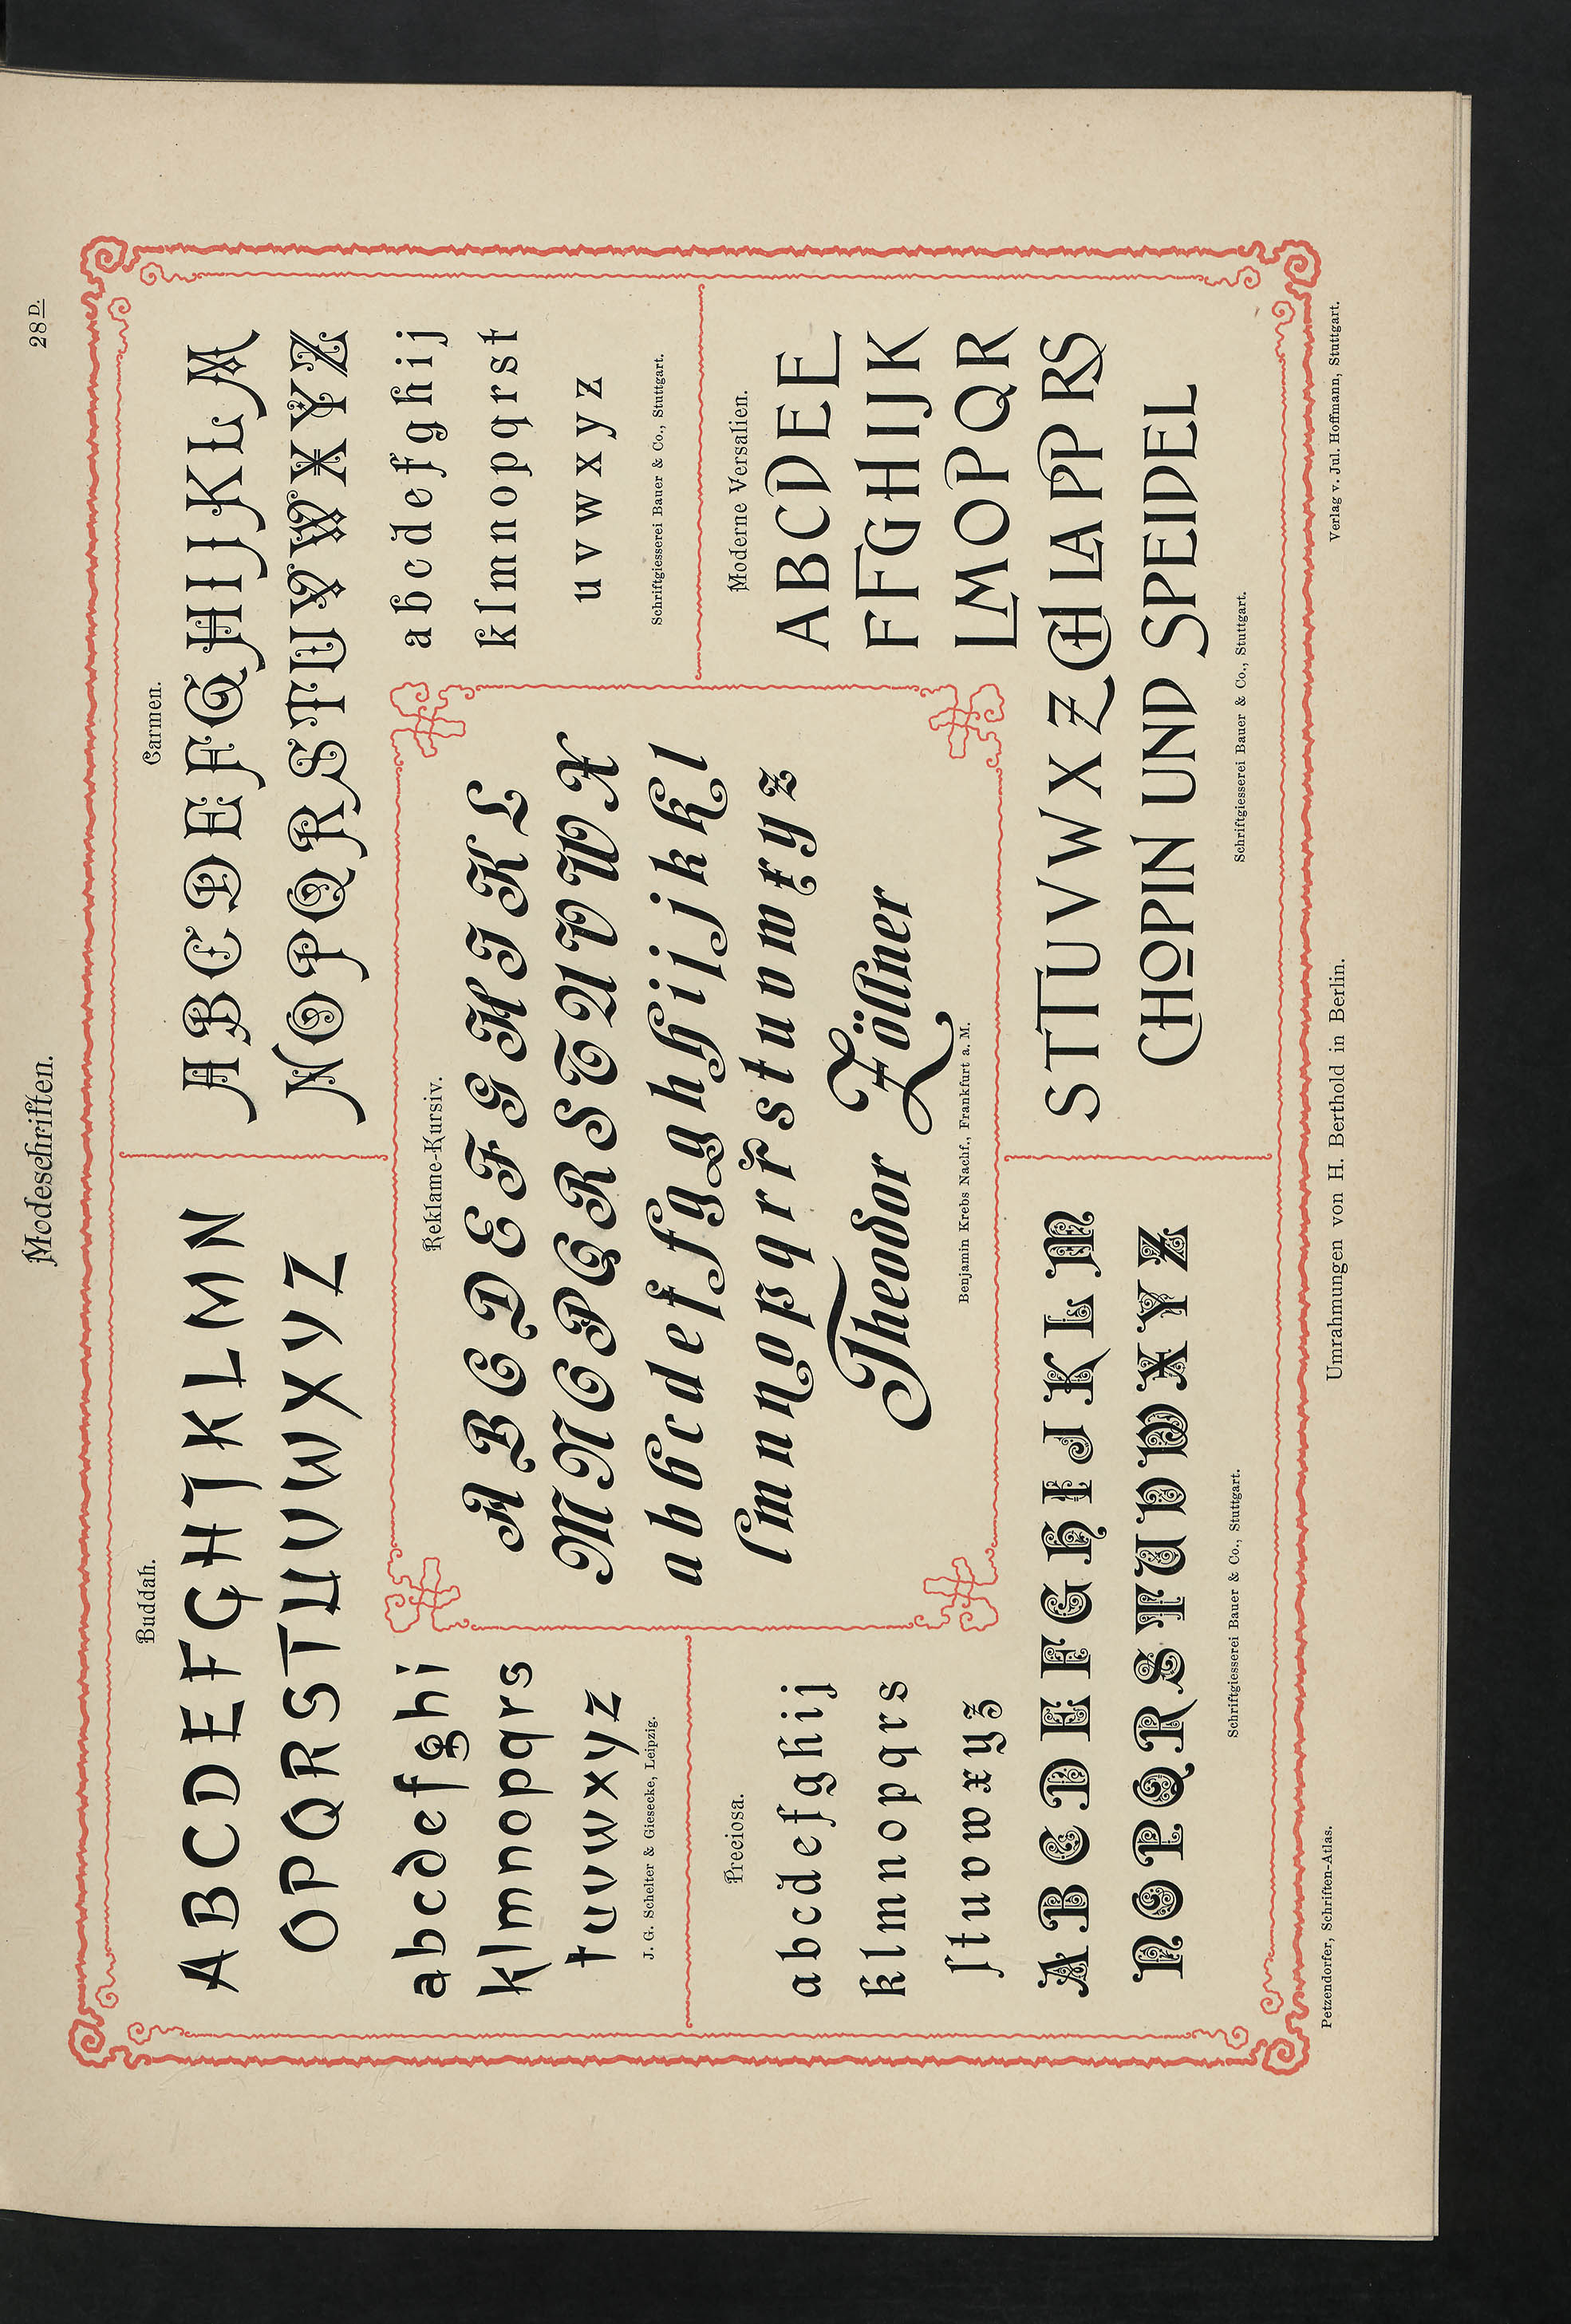 Modeschriften.
28D.
Buddah.
A B C D E F G H I K L M N
O P Q R S T U U V W X Y Z
a b c d e f g h i
k l m n o p q r s
t u v w x y z
J. G. Schelter & Giesecke, Leipzig.
Carmen.
A B C D E F G H I J K L M
N O P Q R S T U V W X Y Z
a b c d e f g h i j
k l m n o p q r s t
u v w x y z
Schriftgiesserei Bauer & Co., Stuttgart.
Reklame-Kursiv.
A B C D E F G H I K L
M N O P Q R S T U V W X
a b b c d e f f g g h h i i j j k k l
l m n n o p p q r r s t u v w x y z
Theodor Zöllner
Benjamin Krebs Nachf., Frankfurt a. M.
Preciosa.
a b c d e f g h i j
k l m n o p q r s
ſ t u v w x y z
A B C D E F G H I J K L M
N O P Q R S T U V W X Y Z
Schriftgiesserei Bauer & Co., Stuttgart.
Moderne Versalien.
A B C D E E
F F G H I J K
L M O P Q R
S T T U V W X Z CH LA PP RS
CHOPIN UND SPEIDEL
Schriftgiesserei Bauer & Co., Stuttgart.
Petzendorfer, Schriften-Atlas.
Umrahmungen von H. Berthold in Berlin.
Verlag v. Jul. Hoffmann, Stuttgart.